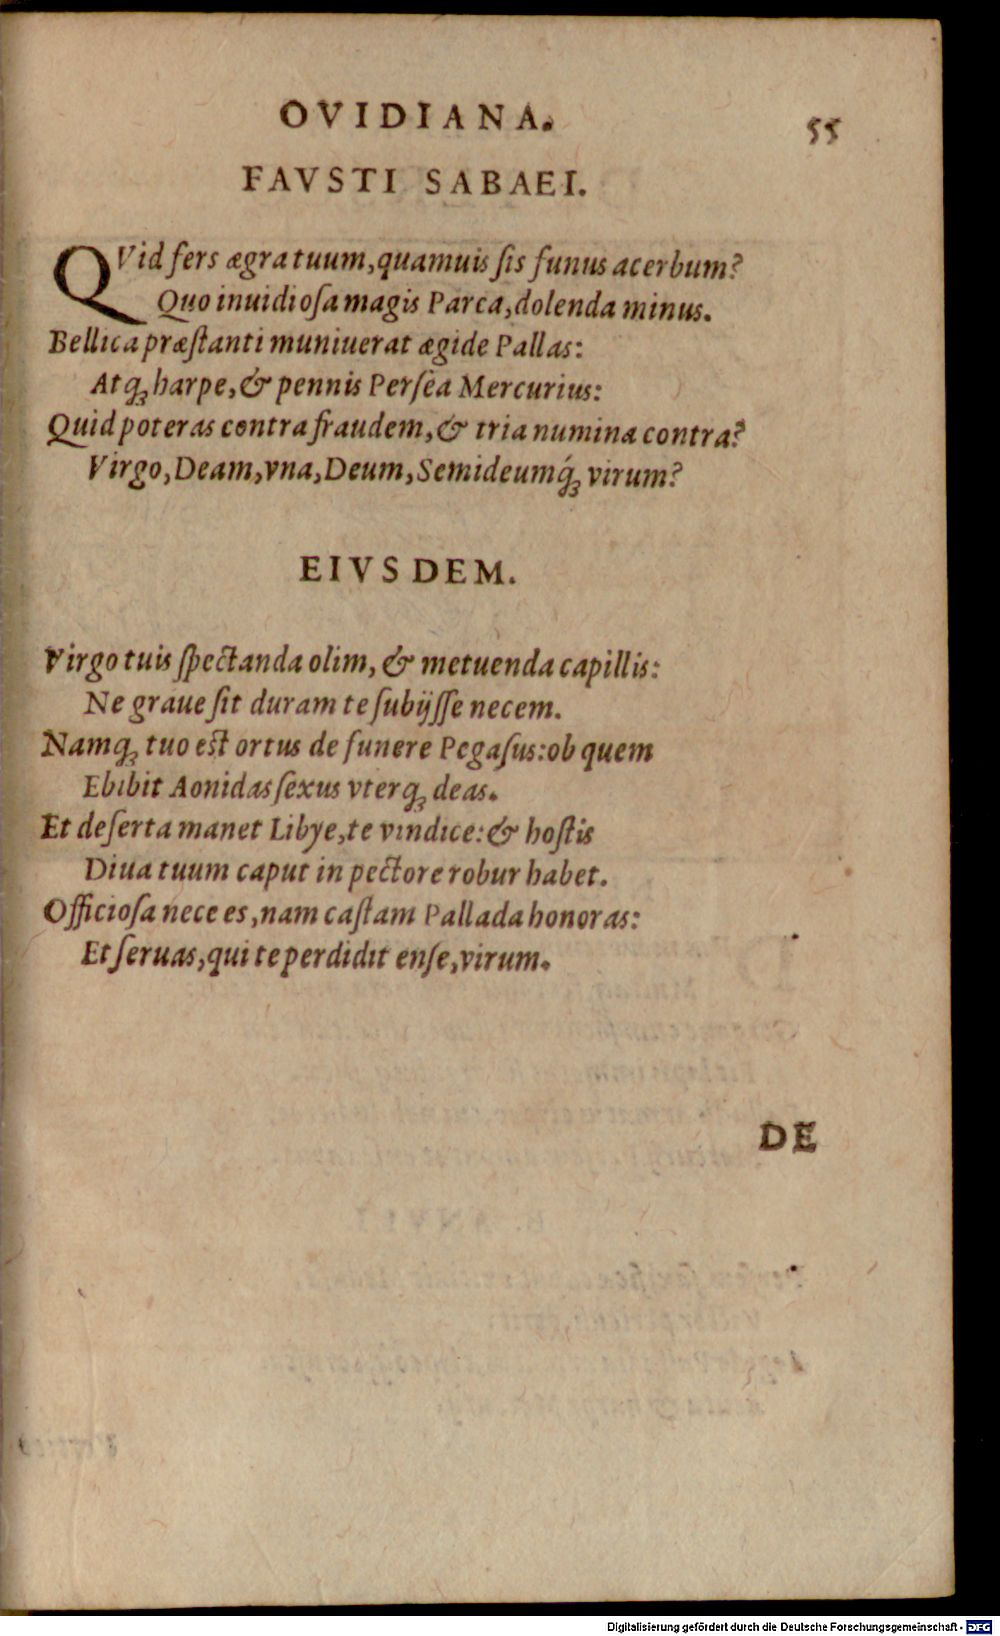 OVIDIANA. 55
FAVSTI SABAEI.
QVid fers ægra tuum, quamuis ſis funus acerbum?
Quo inuidioſa magis Parca, dolenda minus.
Bellica præſtanti muniuerat ægide Pallas:
Atqꝫ harpe, & pennis Perſèa Mercurius:
Quid poteras contra fraudem, & tria numina contra?
Virgo, Deam, vna, Deum, Semideumq́ꝫ virum?
EIVSDEM.
Virgo tuis ſpectanda olim, & metuenda capillis:
Ne graue ſit duram te ſubijſſe necem.
Namqꝫ tuo eſt ortus de funere Pegaſus: ob quem
Ebibit Aonidas ſexus vterqꝫ deas.
Et deſerta manet Libye, te vindice: & hoſtis
Diua tuum caput in pectore robur habet.
Officioſa nece es, nam caſtam Pallada honoras:
Et ſeruas, qui te perdidit enſe, virum.
DE
Digitalisierung gefördert durch die Deutsche Forschungsgemeinschaft - DFG